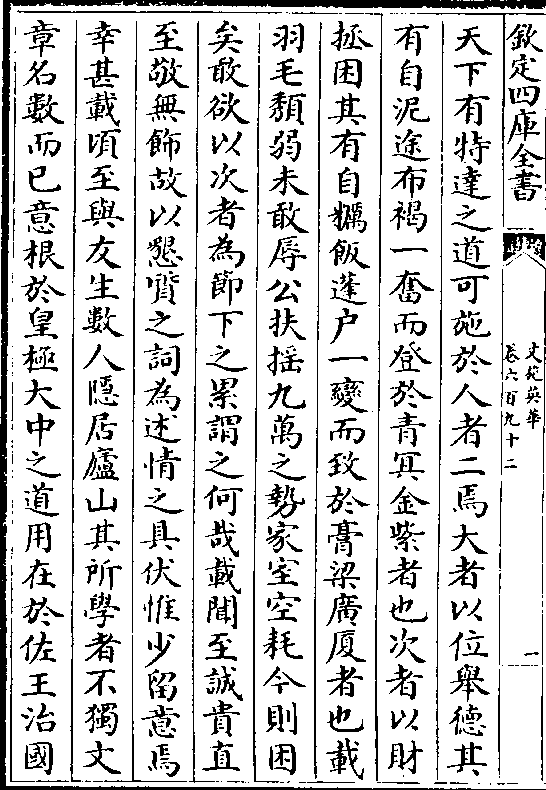 欽定四庫全書
文苑英華
卷六百九十二
一
天下有特達之道可施於人者二焉大者以位舉德其
有自泥途布褐一奮而登於青冥金紫者也次者以財
拯困其有自糲飯蓬户一變而致於膏粱廣厦者也載
羽毛頽弱未敢辱公扶揺九萬之勢家室空耗今則困
矣敢欲以次者為節下之累謂之何哉載聞至誠貴直
至敬無飾故以懇質之詞為述情之具伏惟少留意焉
幸甚載頃至與友生數人隱居廬山其所學者不獨文
章名數而已意根於皇極大中之道用在於佐王治國